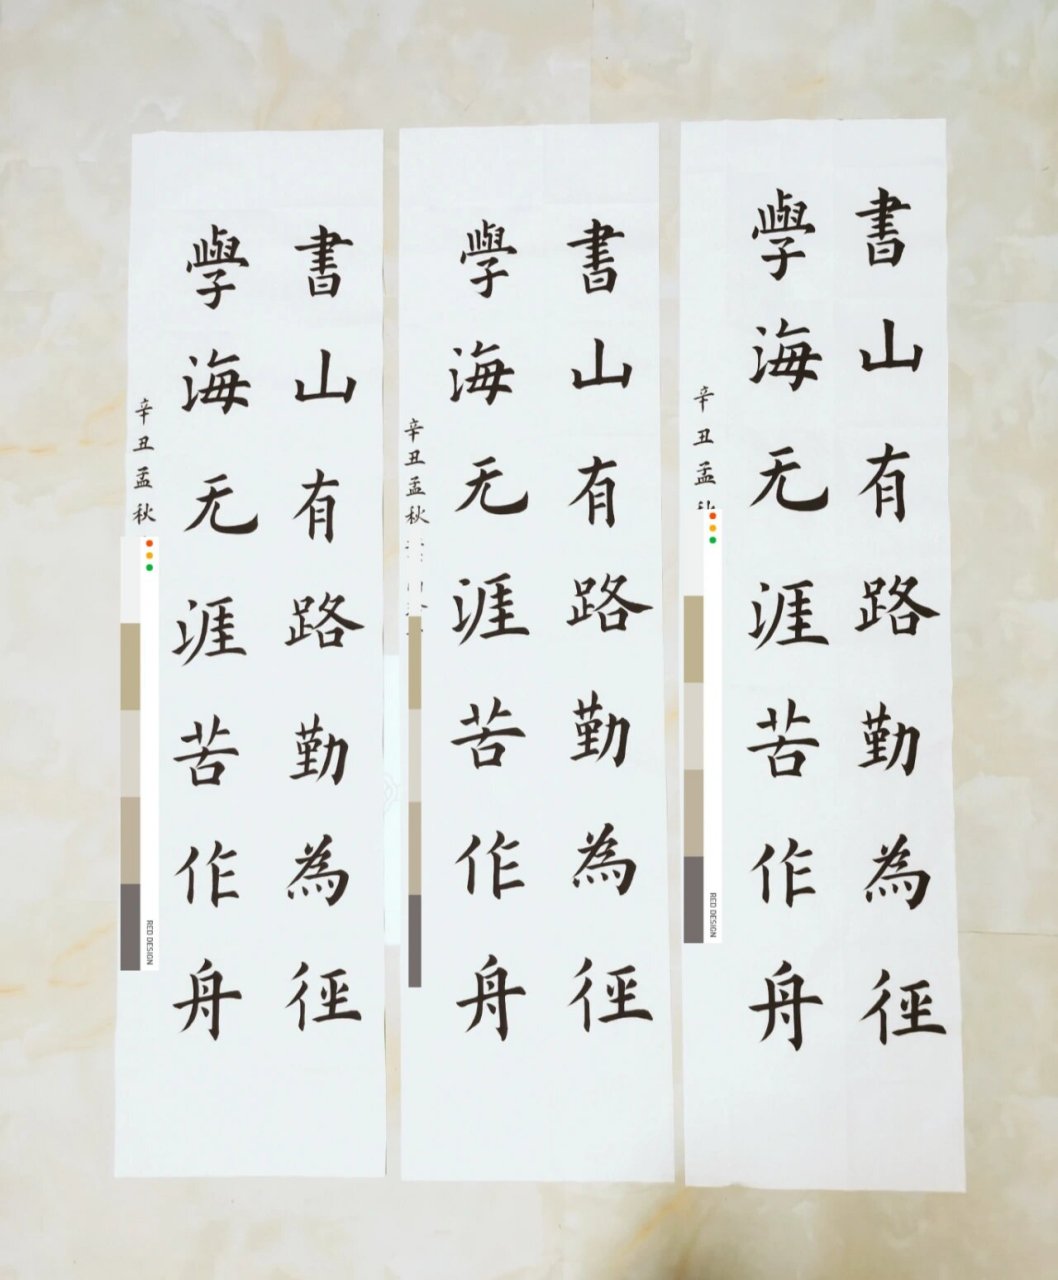 書山有路勤為徑
學海无涯苦作舟
辛丑孟
RED DESIGN
書山有路勤為徑
學海无涯苦作舟
辛丑孟秋
書山有路勤為徑
學海无涯苦作舟
辛丑孟秋
RED DESIGN